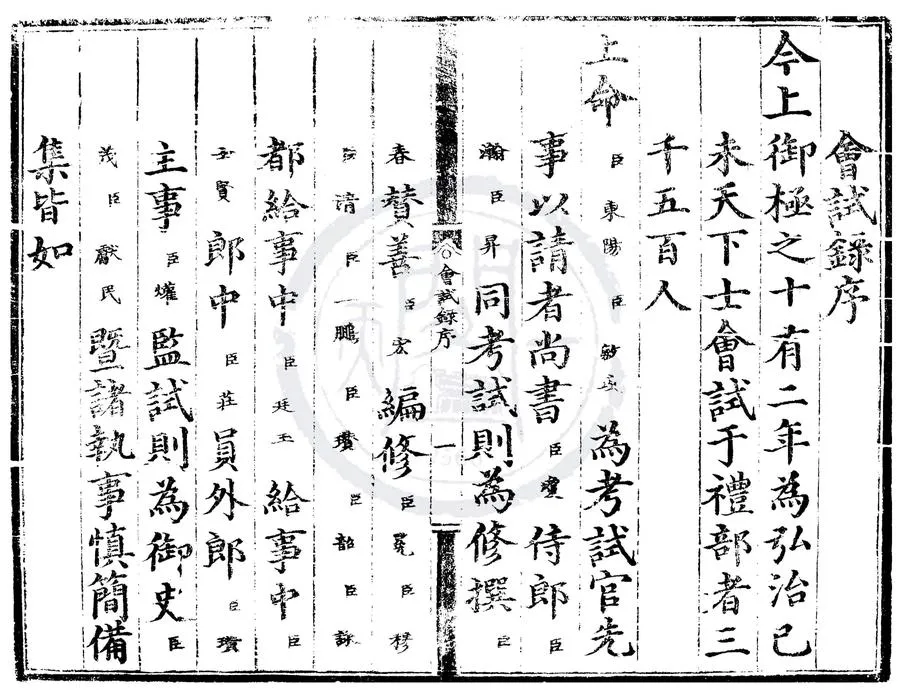 會試錄序
今上御極之十有二年為弘治己
未天下士會試于禮部者三
千五百人
上命臣東陽臣敏政為考試官先
事以請者尚書臣瓊侍郎臣
瀚臣昇同考試則為修撰臣
春贊善臣宏編修臣冕臣穆
臣清臣一鵬臣瓚臣韶臣詠
都給事中臣廷玉給事中臣
玉賢郎中臣莊員外郎臣瓚
主事臣燿監試則為御史臣
茂臣獻民暨諸執事慎簡備
集皆如
會試錄序
一